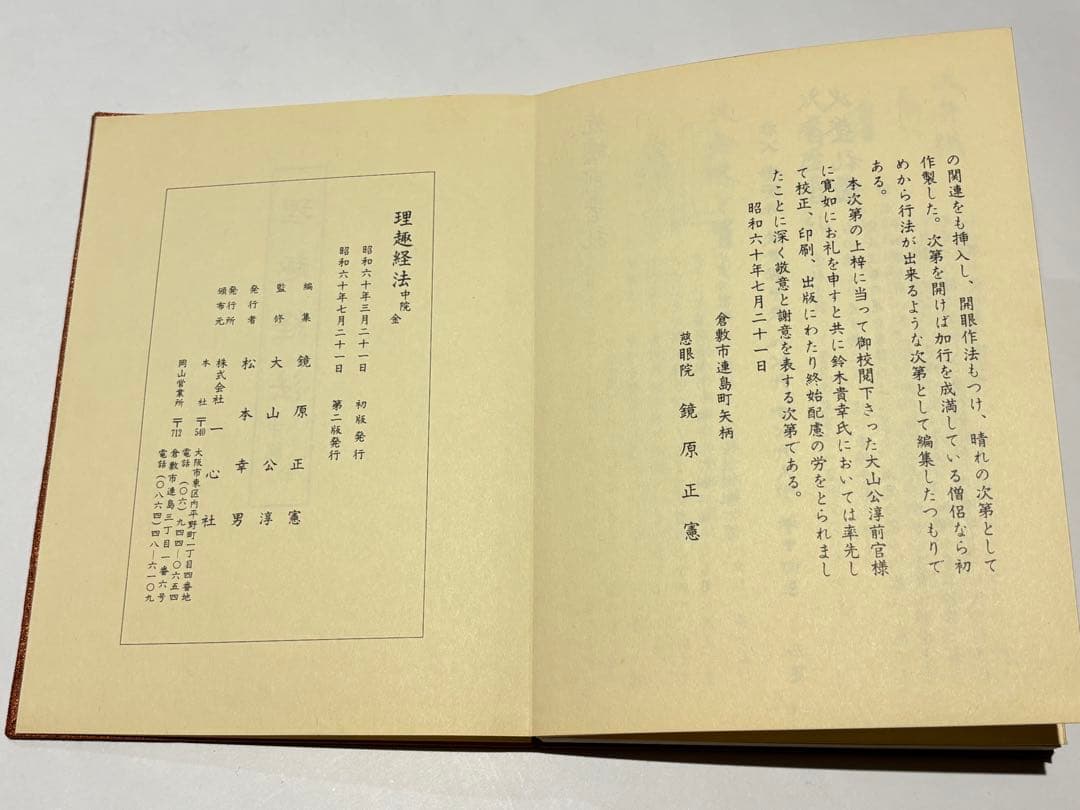 の関連をも挿入し、開眼作法もつけ、晴れの次第として
作製した。次第を開けば加行を成満している僧侶なら初
めから行法が出来るような次第として編集したつもりで
ある。
本次第の上梓に当って御校閲下さった大山公淳前官様
に寛如にお礼を申すと共に鈴木貴幸氏においては率先し
て校正、印刷、出版にわたり終始配慮の労をとられまし
たことに深く敬意と謝意を表する次第である。
昭和六十年七月二十一日
倉敷市連島町矢柄
慈眼院 鏡原正憲
理趣経法 中院 全
昭和六十年三月二十一日 初版発行
昭和六十年七月二十一日 第二版発行
編集 鏡原正憲
監修 大山公淳
発行者 松本幸男
発行所 頒布元 株式会社 一心社
本社 〒540 大阪市東区内平野町一丁目四番地
電話(〇六)九四四―〇六五四
岡山営業所 〒712 倉敷市連島三丁目一番六号
電話(〇八六四)四八―六一〇九